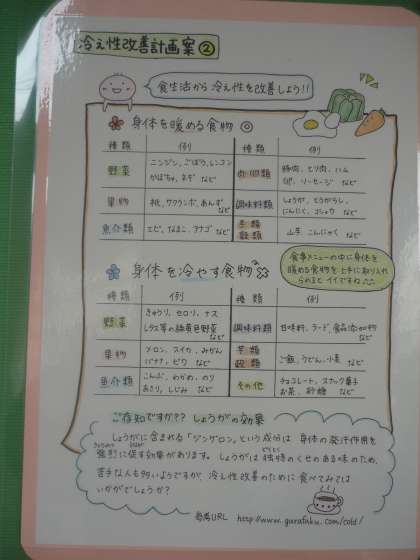 冷え性改善計画案②
食生活から冷え性を改善しよう!!
身体を暖める食物◎
種類 例 種類 例
野菜 ニンジン、ごぼう、レンコン かぼちゃ、ネギ など
肉・卵類 豚肉、とり肉、ハム 卵、ソーセージ など
果物 桃、サクランボ、あんず など
調味料類 しょうが、とうがらし、にんにく、コショウ など
魚介類 エビ、なまこ、アナゴ など
芋類 穀類 山芋、こんにゃく など
食事メニューの中に身体を
暖める食物を上手に取り入れ
られるとイイですね
身体を冷やす食物
種類 例 種類 例
野菜 きゅうり、セロリ、ナス レタス等の緑黄色野菜 など
調味料類 甘味料、ラード、食品添加物 など
果物 メロン、スイカ、みかん バナナ、ビワ など
芋類 穀類 ご飯、うどん、小麦 など
魚介類 こんぶ、わかめ、のり あさり、しじみ など
その他 チョコレート、スナック菓子 お茶、砂糖 など
ご存知ですか?? しょうがの効果
しょうがに含まれる「ジンゲロン」という成分は 身体の発汗作用を
強烈に促す効果があります。しょうがは独特のくせのある味のため、
苦手な人も多いようですが、冷え性改善のために食べてみては
いかがでしょうか?
参考URL http://www.gurafuku.com/cold/